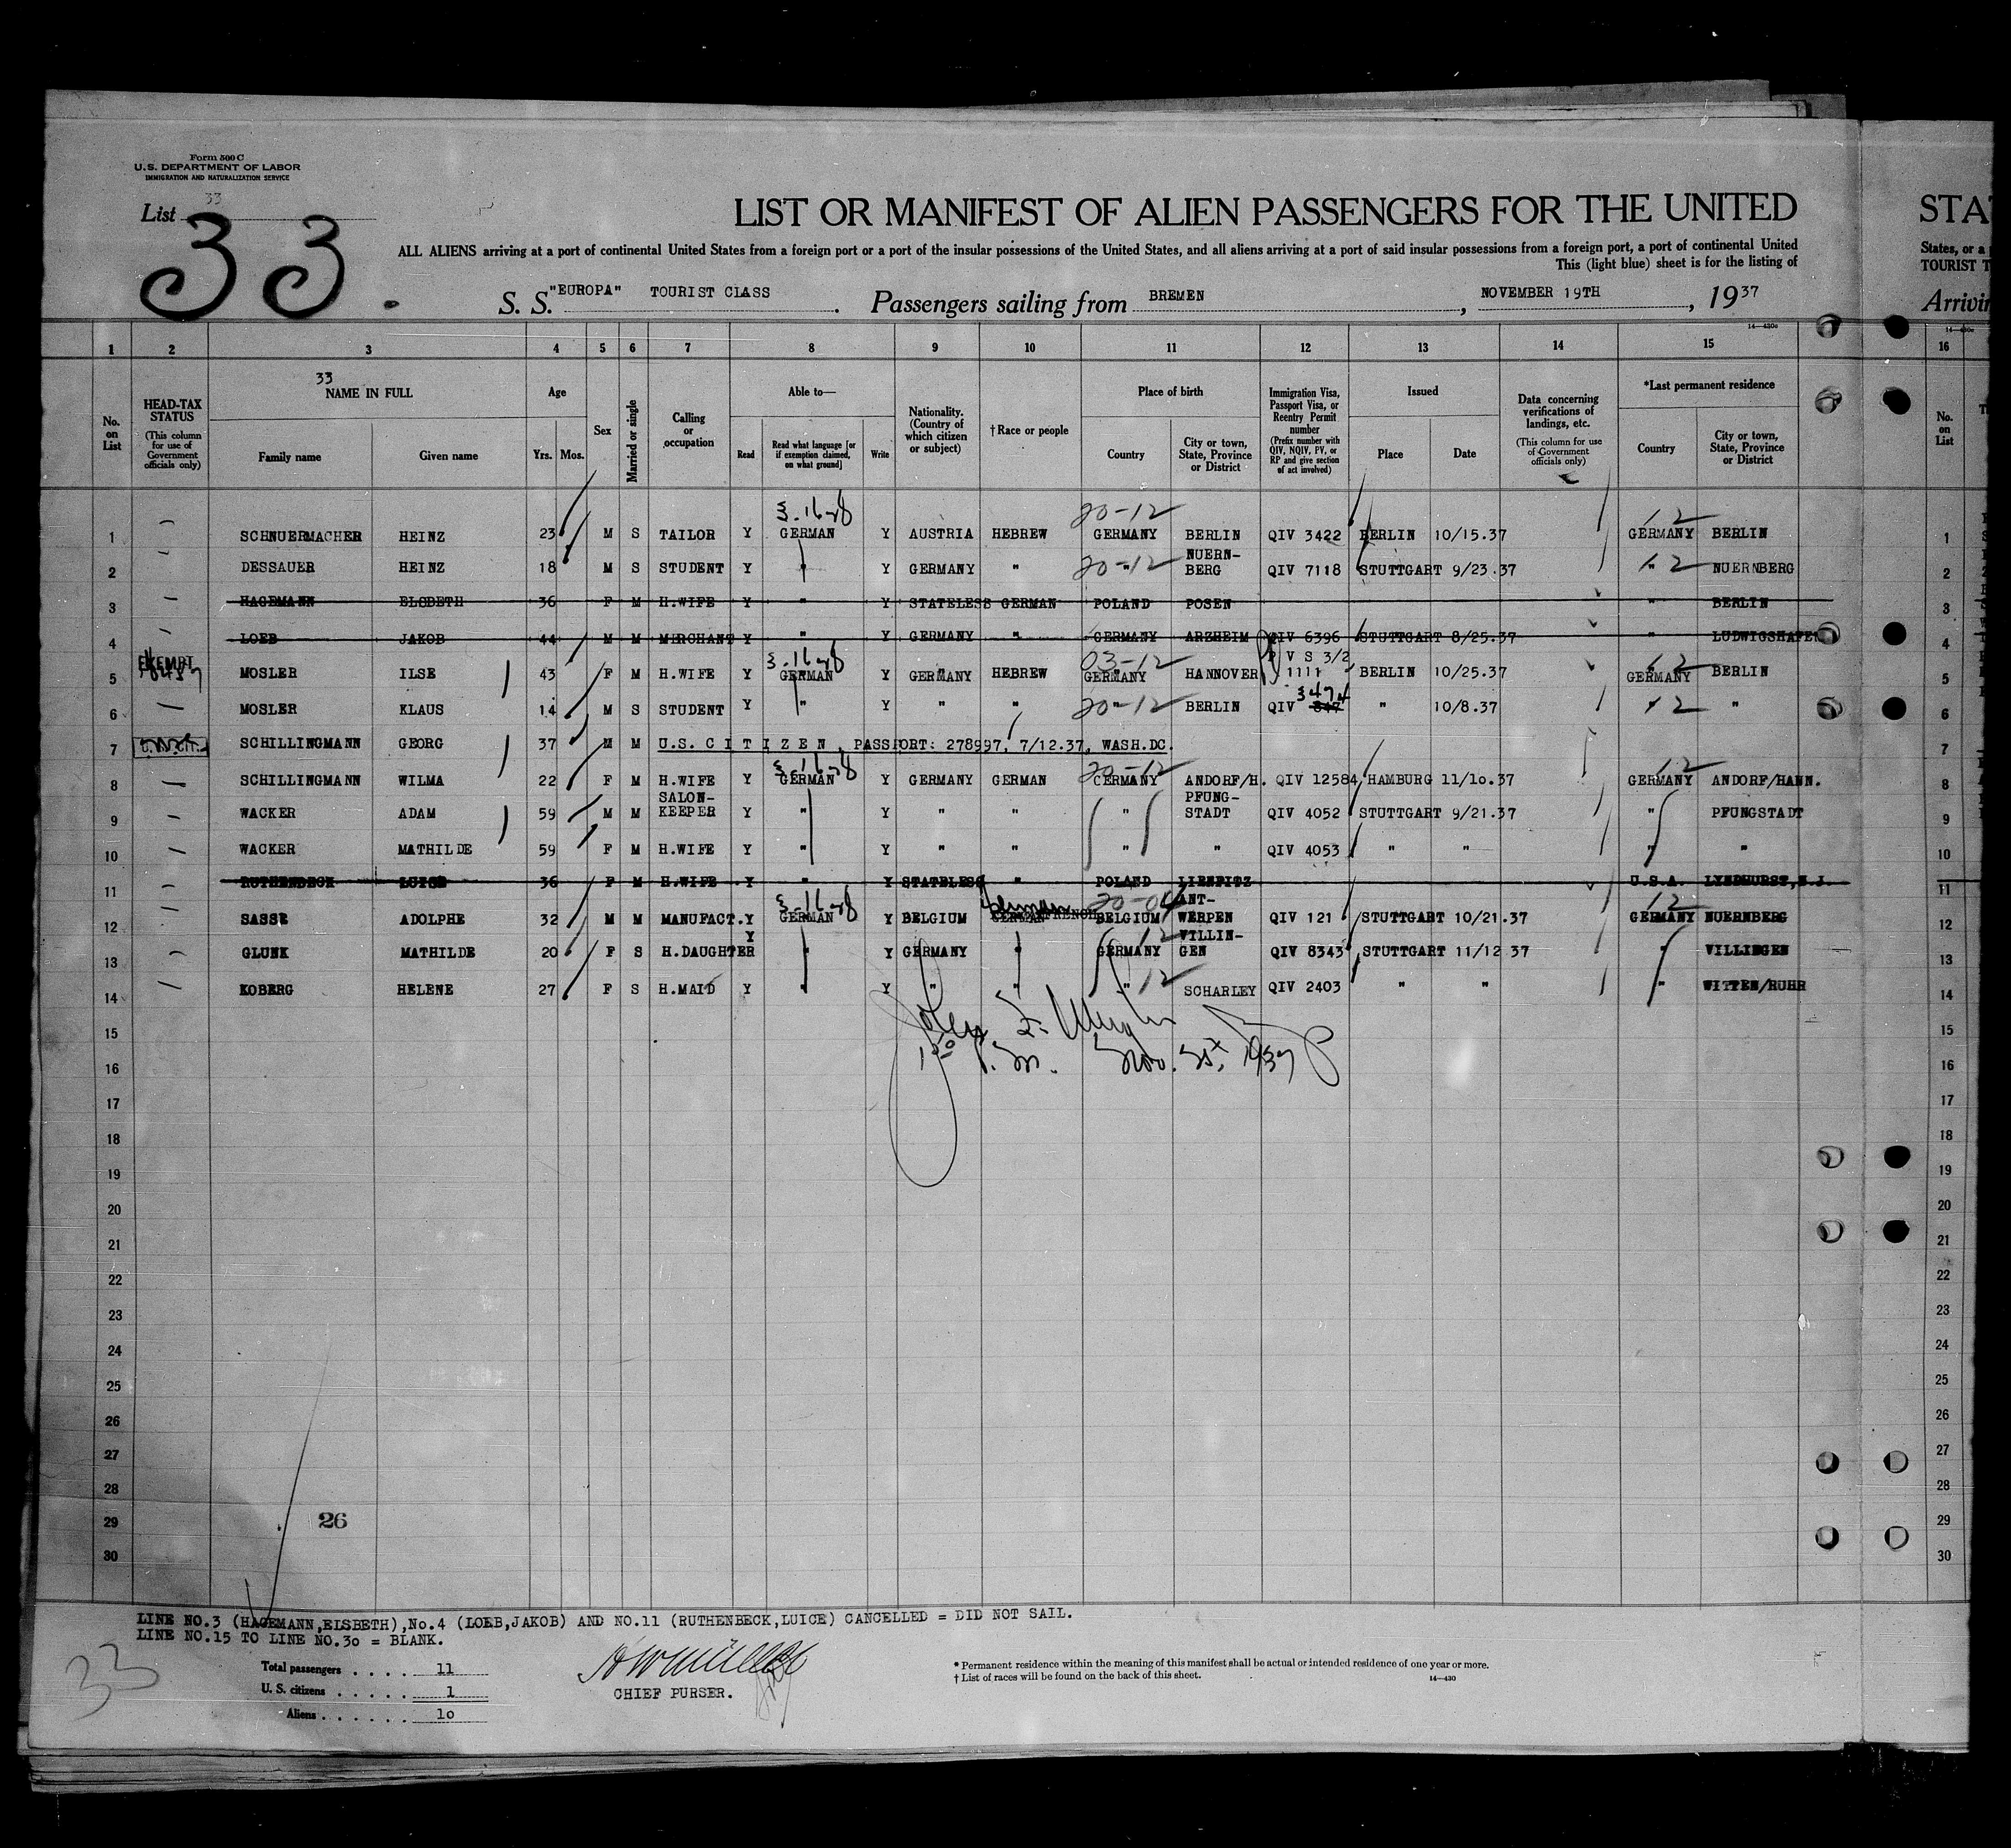 Form 500 C
U.S. DEPARTMENT OF LABOR
IMMIGRATION AND NATURALIZATION SERVICE
List 33
33.
LIST OR MANIFEST OF ALIEN PASSENGERS FOR THE UNITED
STA
ALL ALIENS arriving at a port of continental United States from a foreign port or a port of the insular possessions of the United States, and all aliens arriving at a port of said insular possessions from a foreign port, a port of continental United
States, or a
This (light blue) sheet is for the listing of
TOURIST T
S. S. "EUROPA" TOURIST CLASS. Passengers sailing from BREMEN, NOVEMBER 19TH, 1937
Arrivin
14—430c
1 2 3 4 5 6 7 8 9 10 11 12 13 14 15 16
No. on List
HEAD-TAX STATUS
(This column for use of Government officials only)
33
NAME IN FULL
Family name Given name
Age
Yrs. Mos.
Sex
Married or single
Calling or occupation
Able to—
Read
Read what language [or if exemption claimed, on what ground]
Write
Nationality. (Country of which citizen or subject)
† Race or people
Place of birth
Country
City or town, State, Province or District
Immigration Visa, Passport Visa, or Reentry Permit number
(Prefix number with QIV, NQIV, PV, or RP and give section of act involved)
Issued
Place Date
Data concerning verifications of landings, etc.
(This column for use of Government officials only)
*Last permanent residence
Country
City or town, State, Province or District
No. on List
1 SCHNUERMACHER HEINZ 23 M S TAILOR Y GERMAN Y AUSTRIA HEBREW 20-12 GERMANY BERLIN QIV 3422 BERLIN 10/15.37 12 GERMANY BERLIN 1
2 DESSAUER HEINZ 18 M S STUDENT Y " Y GERMANY " 20-12 " NUERN-BERG QIV 7118 STUTTGART 9/23.37 " 12 NUERNBERG 2
3 HAGEMANN ELSBETH 36 F M H.WIFE Y " Y STATELESS GERMAN POLAND POSEN " BERLIN 3
4 LOEB JAKOB 44 M M MERCHANT Y " Y GERMANY " GERMANY ARZHEIM QIV 6396 STUTTGART 8/25.37 " LUDWIGSHAFEN 4
5 EXEMPT MOSLER ILSE 43 F M H.WIFE Y GERMAN Y GERMANY HEBREW 03-12 GERMANY HANNOVER P V S 3/2 1111 BERLIN 10/25.37 12 GERMANY BERLIN 5
6 MOSLER KLAUS 14 M S STUDENT Y " Y " " 20-12 " BERLIN QIV 847 3474 " 10/8.37 12 " 6
7 U.S. CIT. SCHILLINGMANN GEORG 37 M M U.S. CITIZEN, PASSPORT: 278997, 7/12.37, WASH.DC. 7
8 SCHILLINGMANN WILMA 22 F M H.WIFE Y GERMAN Y GERMANY GERMAN 20-12 GERMANY ANDORF/H. QIV 12584 HAMBURG 11/10.37 12 GERMANY ANDORF/HANN. 8
9 WACKER ADAM 59 M M SALON-KEEPER Y " Y " " " PFUNG-STADT QIV 4052 STUTTGART 9/21.37 " PFUNGSTADT 9
10 WACKER MATHILDE 59 F M H.WIFE Y " Y " " " " QIV 4053 " " " " 10
11 RUTHENBECK LUICE 36 F M H.WIFE Y " Y STATELESS " POLAND U.S.A. LYNDHURST,N.J. 11
12 SASSE ADOLPHE 32 M M MANUFACT. Y GERMAN Y BELGIUM GERMAN FRENCH German 20-04 BELGIUM ANT-WERPEN QIV 121 STUTTGART 10/21.37 12 GERMANY NUERNBERG 12
13 GLUNK MATHILDE 20 F S H.DAUGHTER Y " Y GERMANY " 12 GERMANY VILLIN-GEN QIV 8343 STUTTGART 11/12 37 " VILLINGEN 13
14 KOBERG HELENE 27 F S H.MAID Y " Y " " " 12 SCHARLEY QIV 2403 " " " WITTEN/RUHR 14
15 15
16 P. M. Nov. 1937 16
17 17
18 18
19 19
20 20
21 21
22 22
23 23
24 24
25 25
26 26
27 27
28 28
29 26 29
30 30
LINE NO.3 (HAGEMANN,ELSBETH),No.4 (LOEB,JAKOB) AND NO.11 (RUTHENBECK,LUICE) CANCELLED = DID NOT SAIL.
LINE NO.15 TO LINE NO.3o = BLANK.
33
Total passengers . . . . 11
U. S. citizens . . . . . 1
Aliens . . . . . . 1o
CHIEF PURSER.
* Permanent residence within the meaning of this manifest shall be actual or intended residence of one year or more.
† List of races will be found on the back of this sheet.
14—430